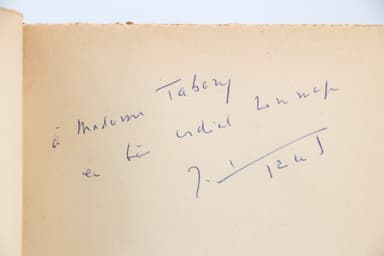 à Madame Tabary
en très cordial hommage